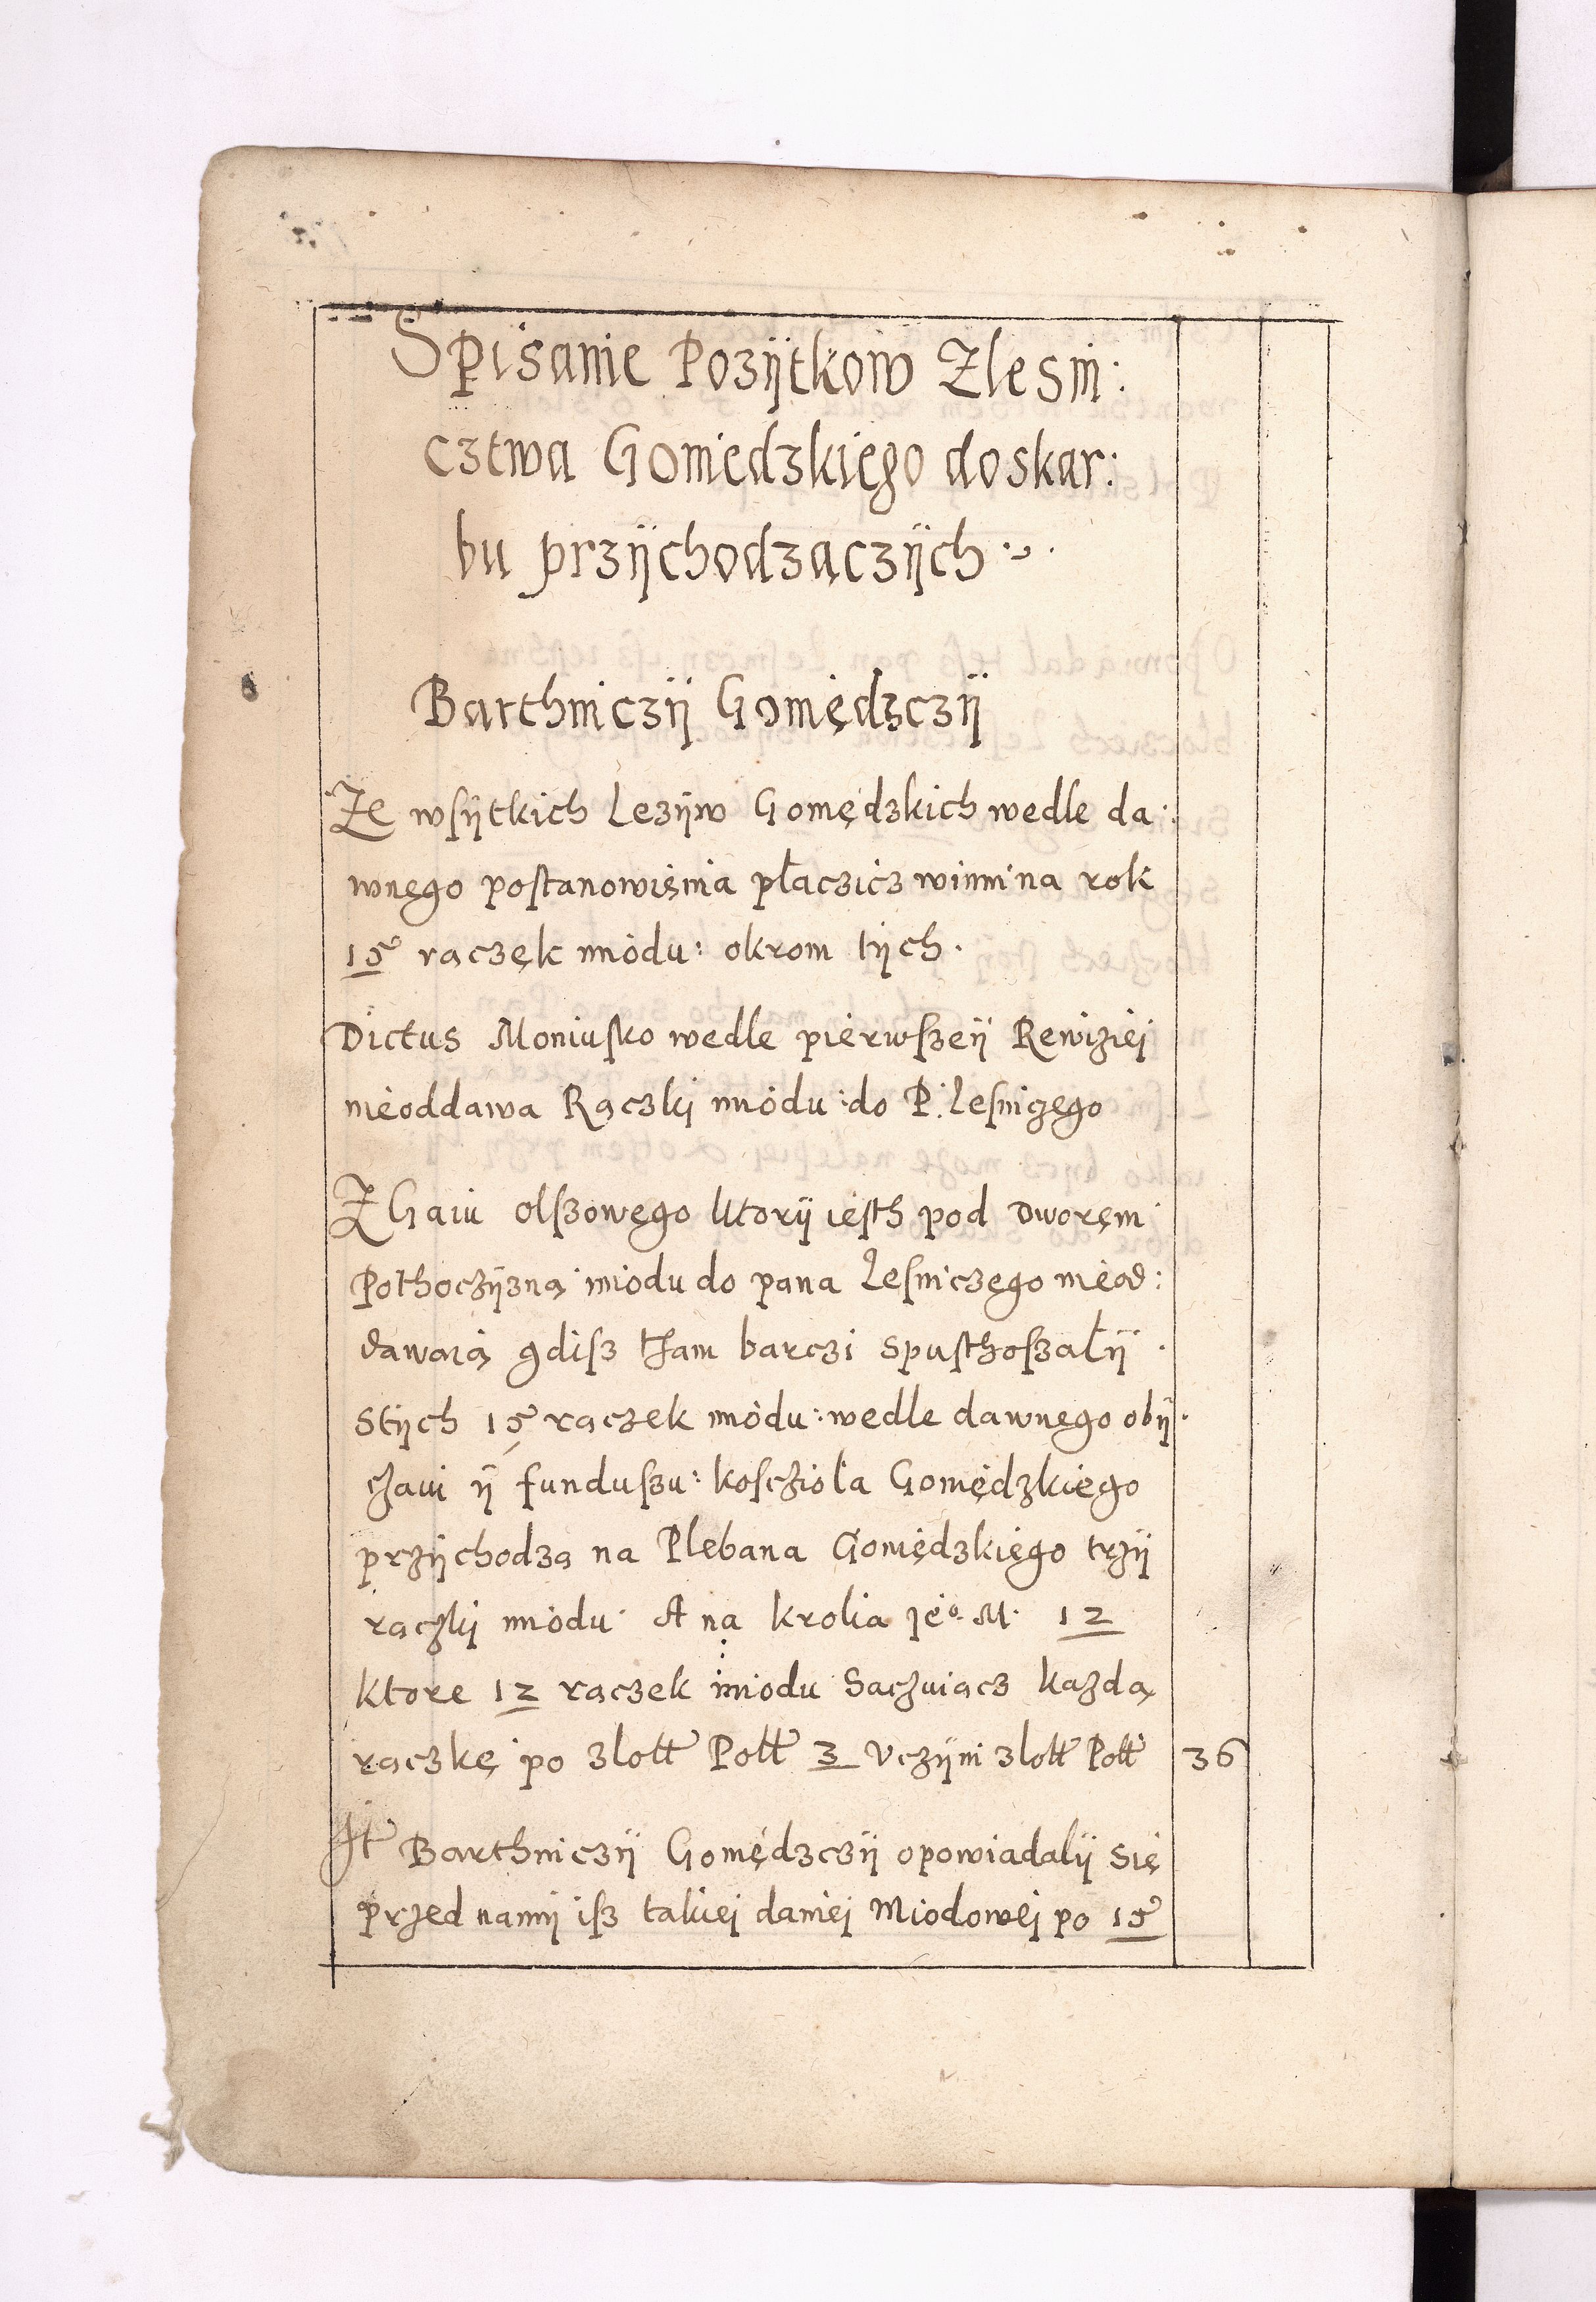 Spisanie Pozÿtkow Zlesni:
cztwa Goniedzkiego do skar:
bu przÿchodzączÿch
Barthniczÿ Goniędzczÿ
Ze wsÿtkich Lezÿw Goniędzkich wedle da:
wnego postanowienia płaczicz winni na rok
15 raczek miodu: okrom tÿch.
Dictus Moniusko wedle pierwszeÿ Rewiziej
nieoddawa Raczkj miodu: do P. Lesniczego
Z Gaiu olszowego ktorÿ iesth pod dworem
Pothoczÿzna miodu do pana Lesniczego nieod:
dawaią gdisz tham barczi spusthoszalÿ.
Stÿch 15 raczek miodu: wedle dawnego obÿ:
czaui ÿ funduszu: kosczioła Goniędzkiego
przÿchodzą na Plebana Goniędzkiego trzÿ
raczkj miodu. A na krolia Jeo. M. 12
ktore 12 raczek miodu Saczuiącz kazdą
raczkę po zlott Poltt 3 Vczÿni zlott Poltt 36
It Barthniczÿ Goniędzczÿ opowiadalÿ się
przed namÿ isz takiej daniej Miodowej po 15